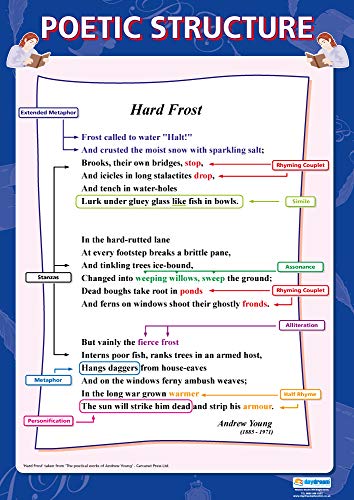 POETIC STRUCTURE
Hard Frost
Extended Metaphor
Frost called to water "Halt!"
And crusted the moist snow with sparkling salt;
Brooks, their own bridges, stop,
Rhyming Couplet
And icicles in long stalactites drop,
And tench in water-holes
Lurk under gluey glass like fish in bowls.
Simile
In the hard-rutted lane
At every footstep breaks a brittle pane,
And tinkling trees ice-bound,
Assonance
Stanzas
Changed into weeping willows, sweep the ground;
Dead boughs take root in ponds
Rhyming Couplet
And ferns on windows shoot their ghostly fronds.
Alliteration
But vainly the fierce frost
Interns poor fish, ranks trees in an armed host,
Hangs daggers from house-eaves
Metaphor
And on the windows ferny ambush weaves;
In the long war grown warmer
Half Rhyme
The sun will strike him dead and strip his armour.
Personification
Andrew Young
(1885 - 1971)
'Hard Frost' taken from 'The poetical works of Andrew Young' - Carcanet Press Ltd.
daydream